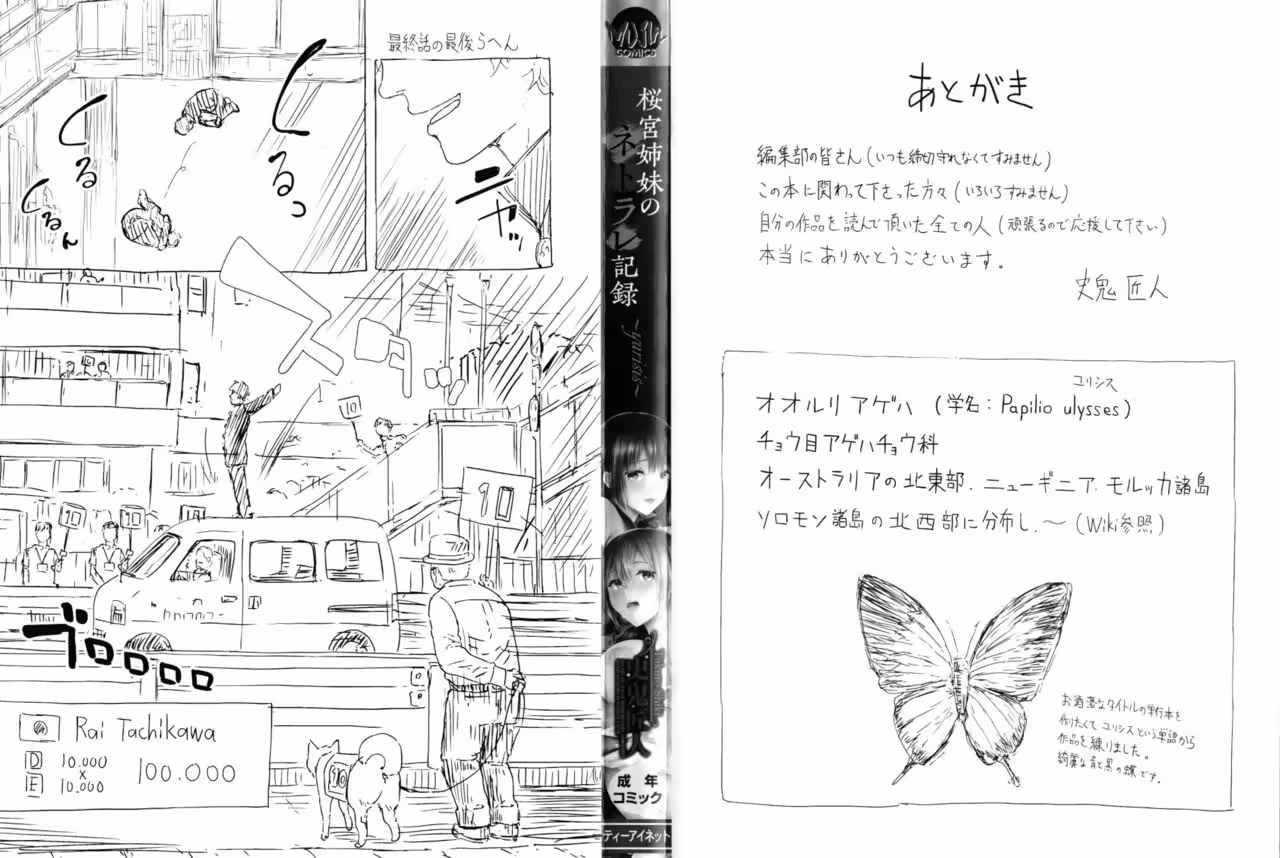 最終話の最後らへん
くるくるっ
くるん
ニヤッ
10
10
10
10
90
ブロロロロ
Rai Tachikawa
D 10.000
×
E 10.000
100.000
10
COMICS
桜宮姉妹の
ネトラレ記録
~yurisis~
成年
コミック
ティーアイネット
あとがき
編集部の皆さん(いつも締切守れなくてすみません)
この本に関わって下さった方々(いろいろすみません)
自分の作品を読んで頂いた全ての人(頑張るので応援して下さい)
本当にありがとうございます。
史鬼匠人
ユリシス
オオルリアゲハ (学名:Papilio ulysses)
チョウ目アゲハチョウ科
オーストラリアの北東部、ニューギニア、モルッカ諸島
ソロモン諸島の北西部に分布し、～(Wiki参照)
お洒落なタイトルの単行本を
作りたくてユリシスという単語から
作品を練りました。
綺麗な青と黒の蝶です。